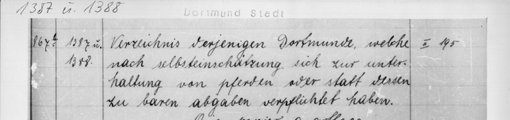 1387 u. 1388
Dortmund Stadt
867 1387 u. Verzeichnis derjenigen Dortmunde, welche II 195
1388. nach selbsteinschätzung sich zur unter-
haltung von pferden oder statt dessen
zu baren abgaben verpflichtet haben.